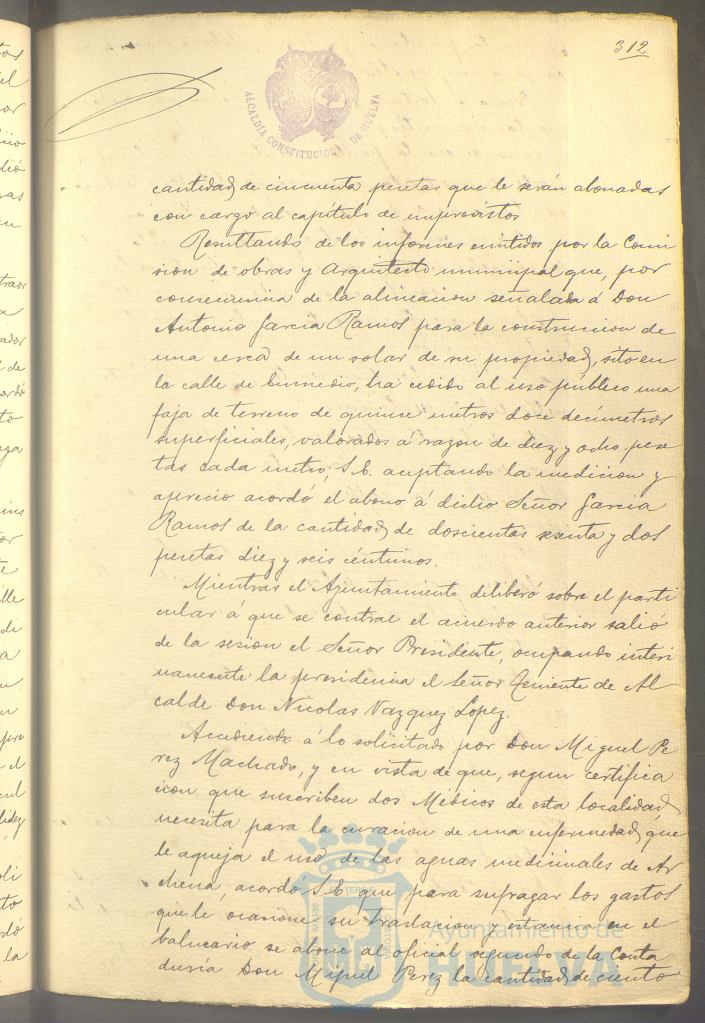 312
ALCALDÍA CONSTITUCIONAL DE HUELVA
cantidad de cincuenta pesetas que le serán abonadas
con cargo al capítulo de imprevistos
Resultando de los informes emitidos por la Comi
sion de obras y Arquitecto municipal que, por
consecuencia de la alineacion señalada á Don
Antonio Garcia Ramos para la construccion de
una cerca de un solar de su propiedad, sito en
la calle de Enmedio, ha cedido al uso público una
faja de terreno de quince metros doce decímetros
superficiales, valorados á razon de diez y ocho pese
tas cada metro; S. E. aceptando la medicion y
aprecio acordó el abono á dicho Señor Garcia
Ramos de la cantidad de doscientas sesenta y dos
pesetas diez y seis céntimos.
Mientras el Ayuntamiento deliberó sobre el parti
cular á que se contrae el acuerdo anterior salió
de la sesion el Señor Presidente, ocupando interi
namente la presidencia el Señor Teniente de Al
calde Don Nicolas Vazquez Lopez.
Accediendo á lo solicitado por Don Miguel Pe
rez Machado, y en vista de que, segun certifica
cion que suscriben dos Médicos de esta localidad,
necesita para la curacion de una enfermedad que
le aqueja el uso de las aguas medicinales de Ar
chena, acordó S. E. que para sufragar los gastos
que le ocasione su traslacion y estancia en el
balneario se abone al oficial segundo de la Conta
duría Don Miguel Perez la cantidad de ciento
Ayuntamiento de
HUELVA